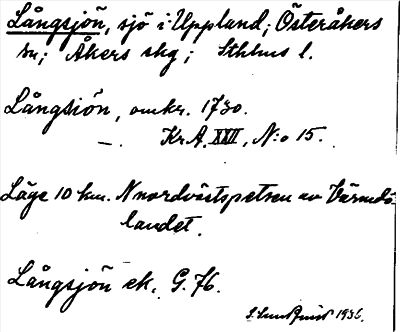 Långsjön, sjö i Uppland; Österåkers
sn; Åkers skg; Sthlms l.
Långsiön, omkr. 1730.
— Kr.A. XXII, N:o 15.
Läge 10 km. N nordvästspetsen av Värmdö
landet.
Långsjön ek. G. 76.
1936.